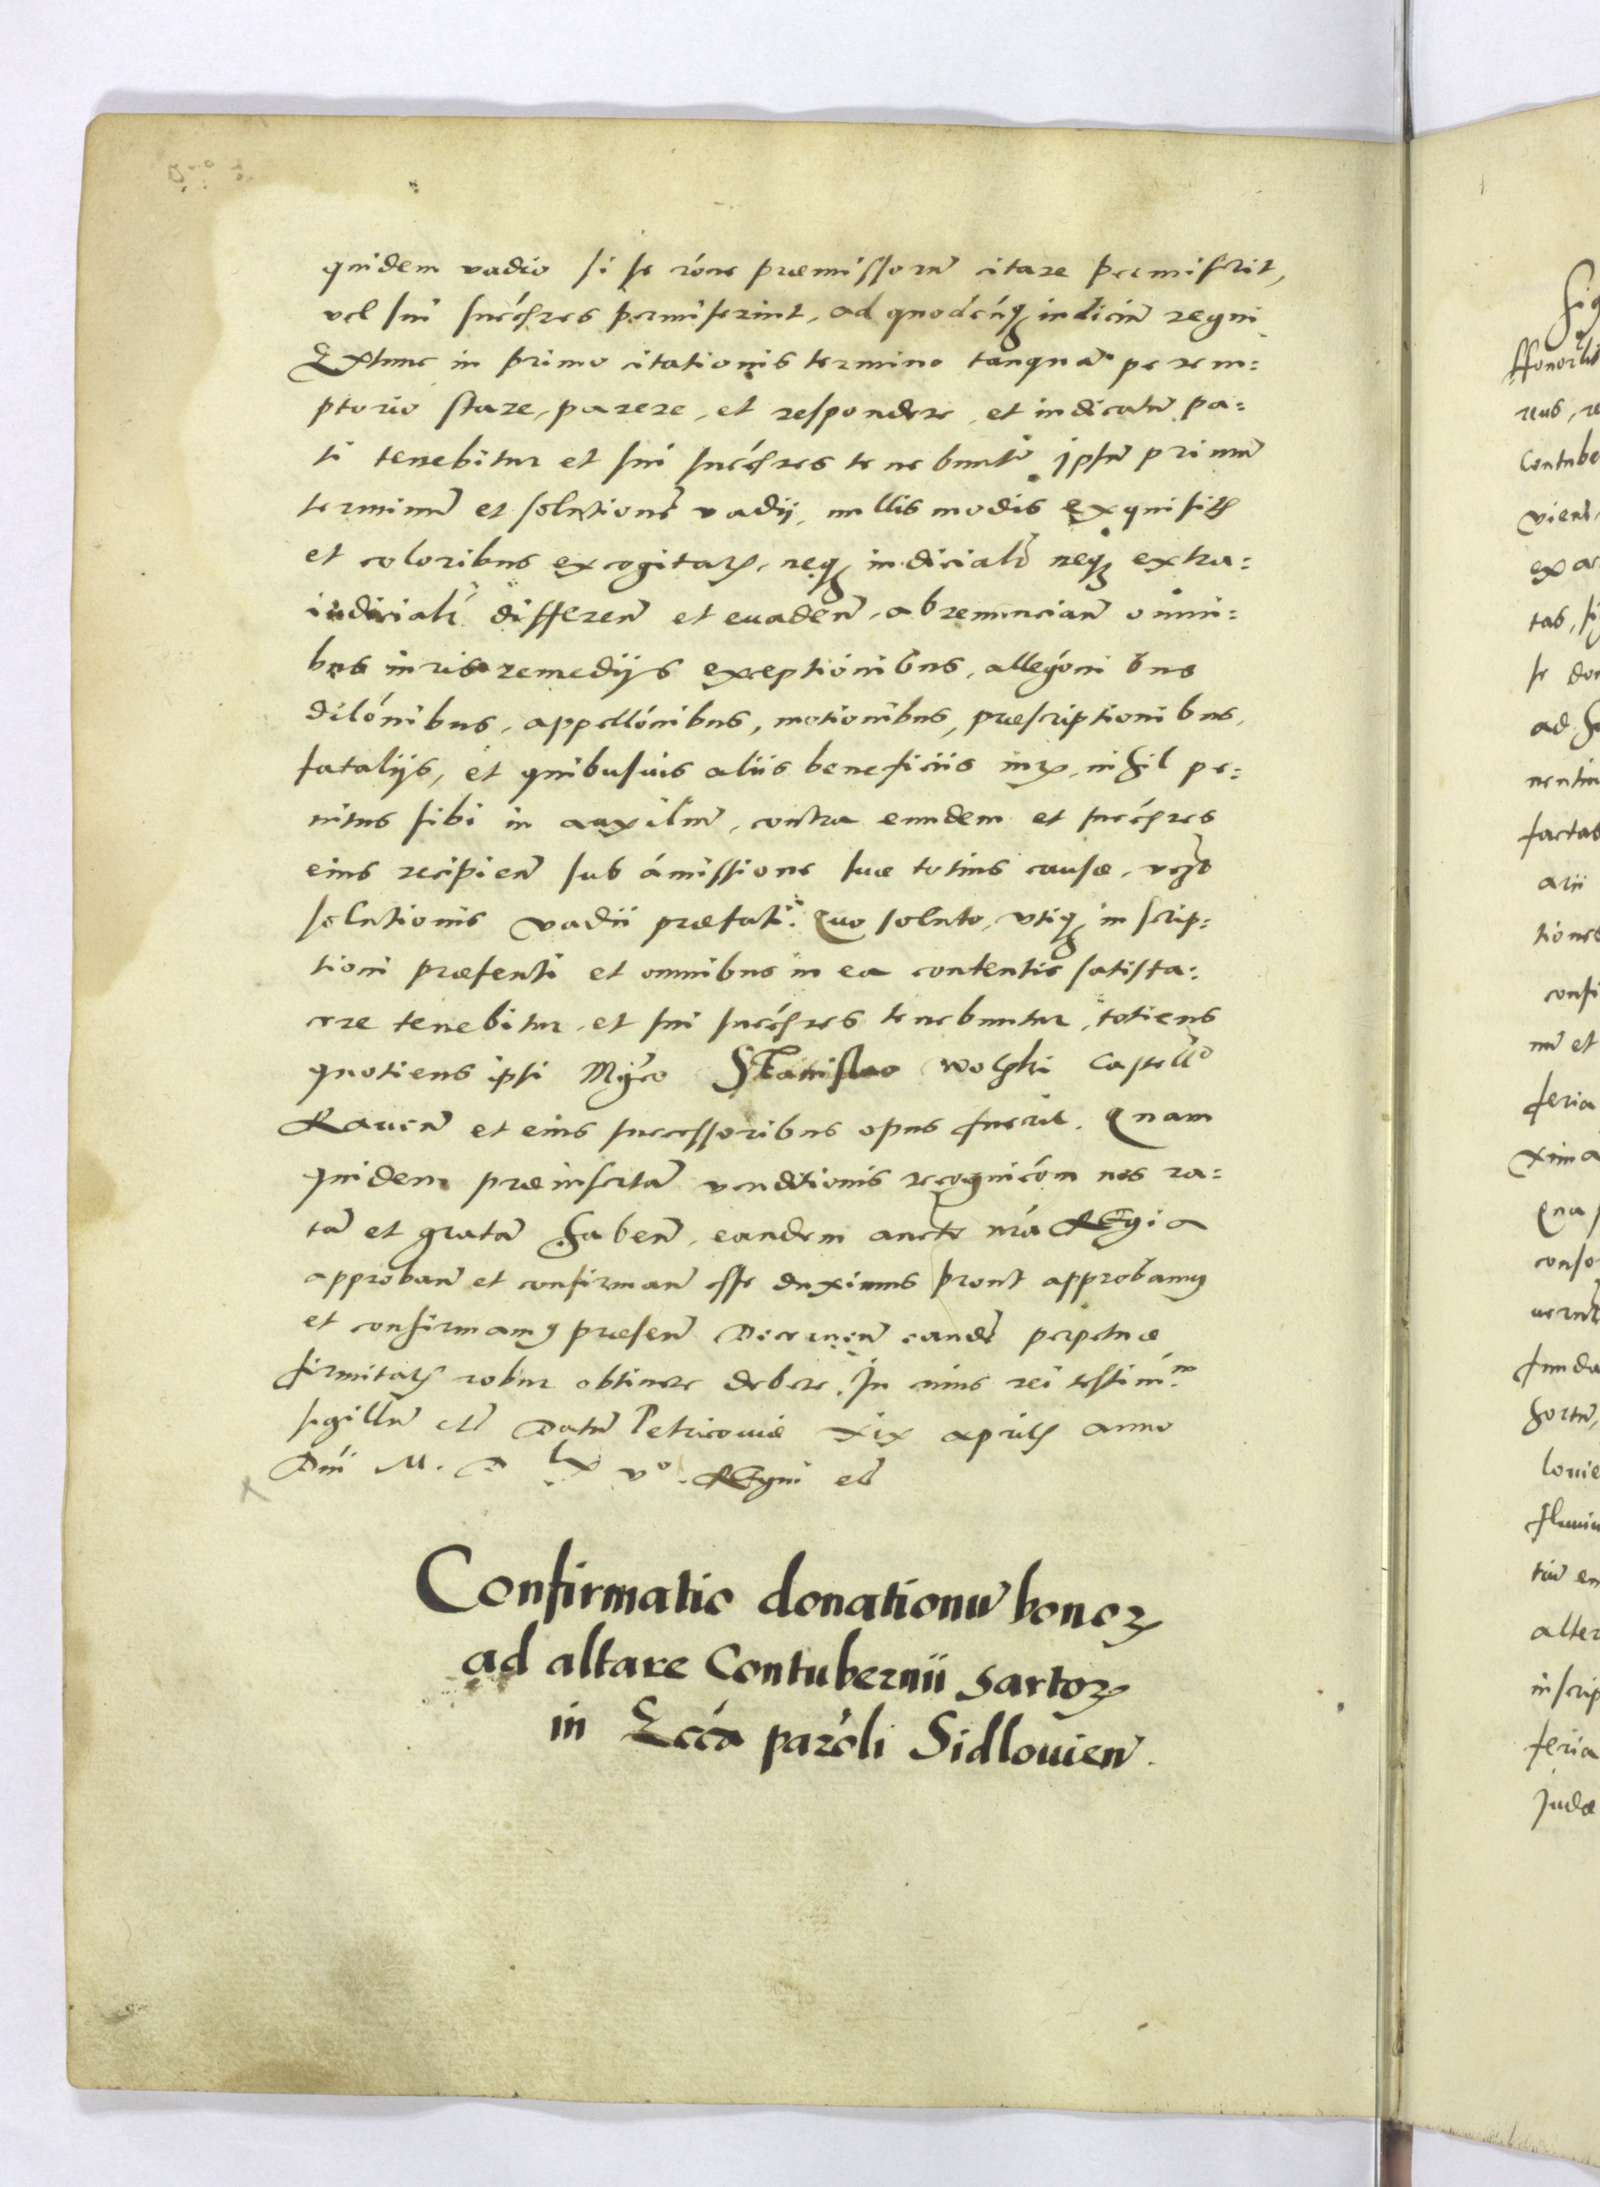 quidem vadio si se róne præmissorũ citare permiserit,
vel sui succeś̃res permiserint, ad quodcúnq̃ indiciũ regni
Extunc in primo citationis termino tanquã perem:
ptorio stare, parere, et respondere et indicatũ pa:
ti tenebitur et sui succés̃res tenebunt̃ ipsũ primũ
terminũ et solutionẽ vadii, nullis modis exquisitꝭ
et coloribus excogitatꝭ, neqꝫ indicialr̃ neqꝫ extra:
iudicialr̃ differeñ et euadeñ, abrenunciañ omni:
bus iuris remedijs exceptionibus, allegónibus
dilónibus, appellónibus, motionibus, præscriptionibus,
fatalijs, et quibusuis aliis beneficiis iurꝭ, nihil pe:
nitus sibi in auxiliũ, contra eundem et succés̃res
eius recipieñ sub ámissione suæ totius causæ,
solutionis vadii præfati. Quo soluto, vtiqꝫ inscrip:
tioni præsenti et omnibus in ea contentis satisfa:
cere tenebitur, et sui succés̃res tenebuntur, totiens
quotiens ipsi Mgćo Stanislao Wolski Castellõ
Raueñ et eius successoribus opus fuerit. Quam
quidem præinsertã venditionis recognicóm nos ra:
tã et gratã habeñ, eandem aucte nrá REgia
approbañ et confirmañ esse duximus prout approbamꝰ
et confirmamꝰ præseñ Decerneñ eandẽ perpetuæ
firmitatꝭ robur obtinere debere. In cuius rei testim̃
sigillũ etc̃ Datũ Petricoviæ xix aprilꝭ anno
Dñi M. D lx vº. REgni etc̃
Confirmatio donationũ bonoꝝ
ad altare Contubernii sartoꝝ
in Eccá paroćli Sidlouieñ.
ffonor
reus, re
Contube
vien
ex ac
tas, si
se don
ad
nentiu
factas
arii
tiones
confi
nũ et
feria
xima
Qua
conso
funda
hortũ,
louie
fluuiu
tiũ en
alter
inscrip
feria
Judæ